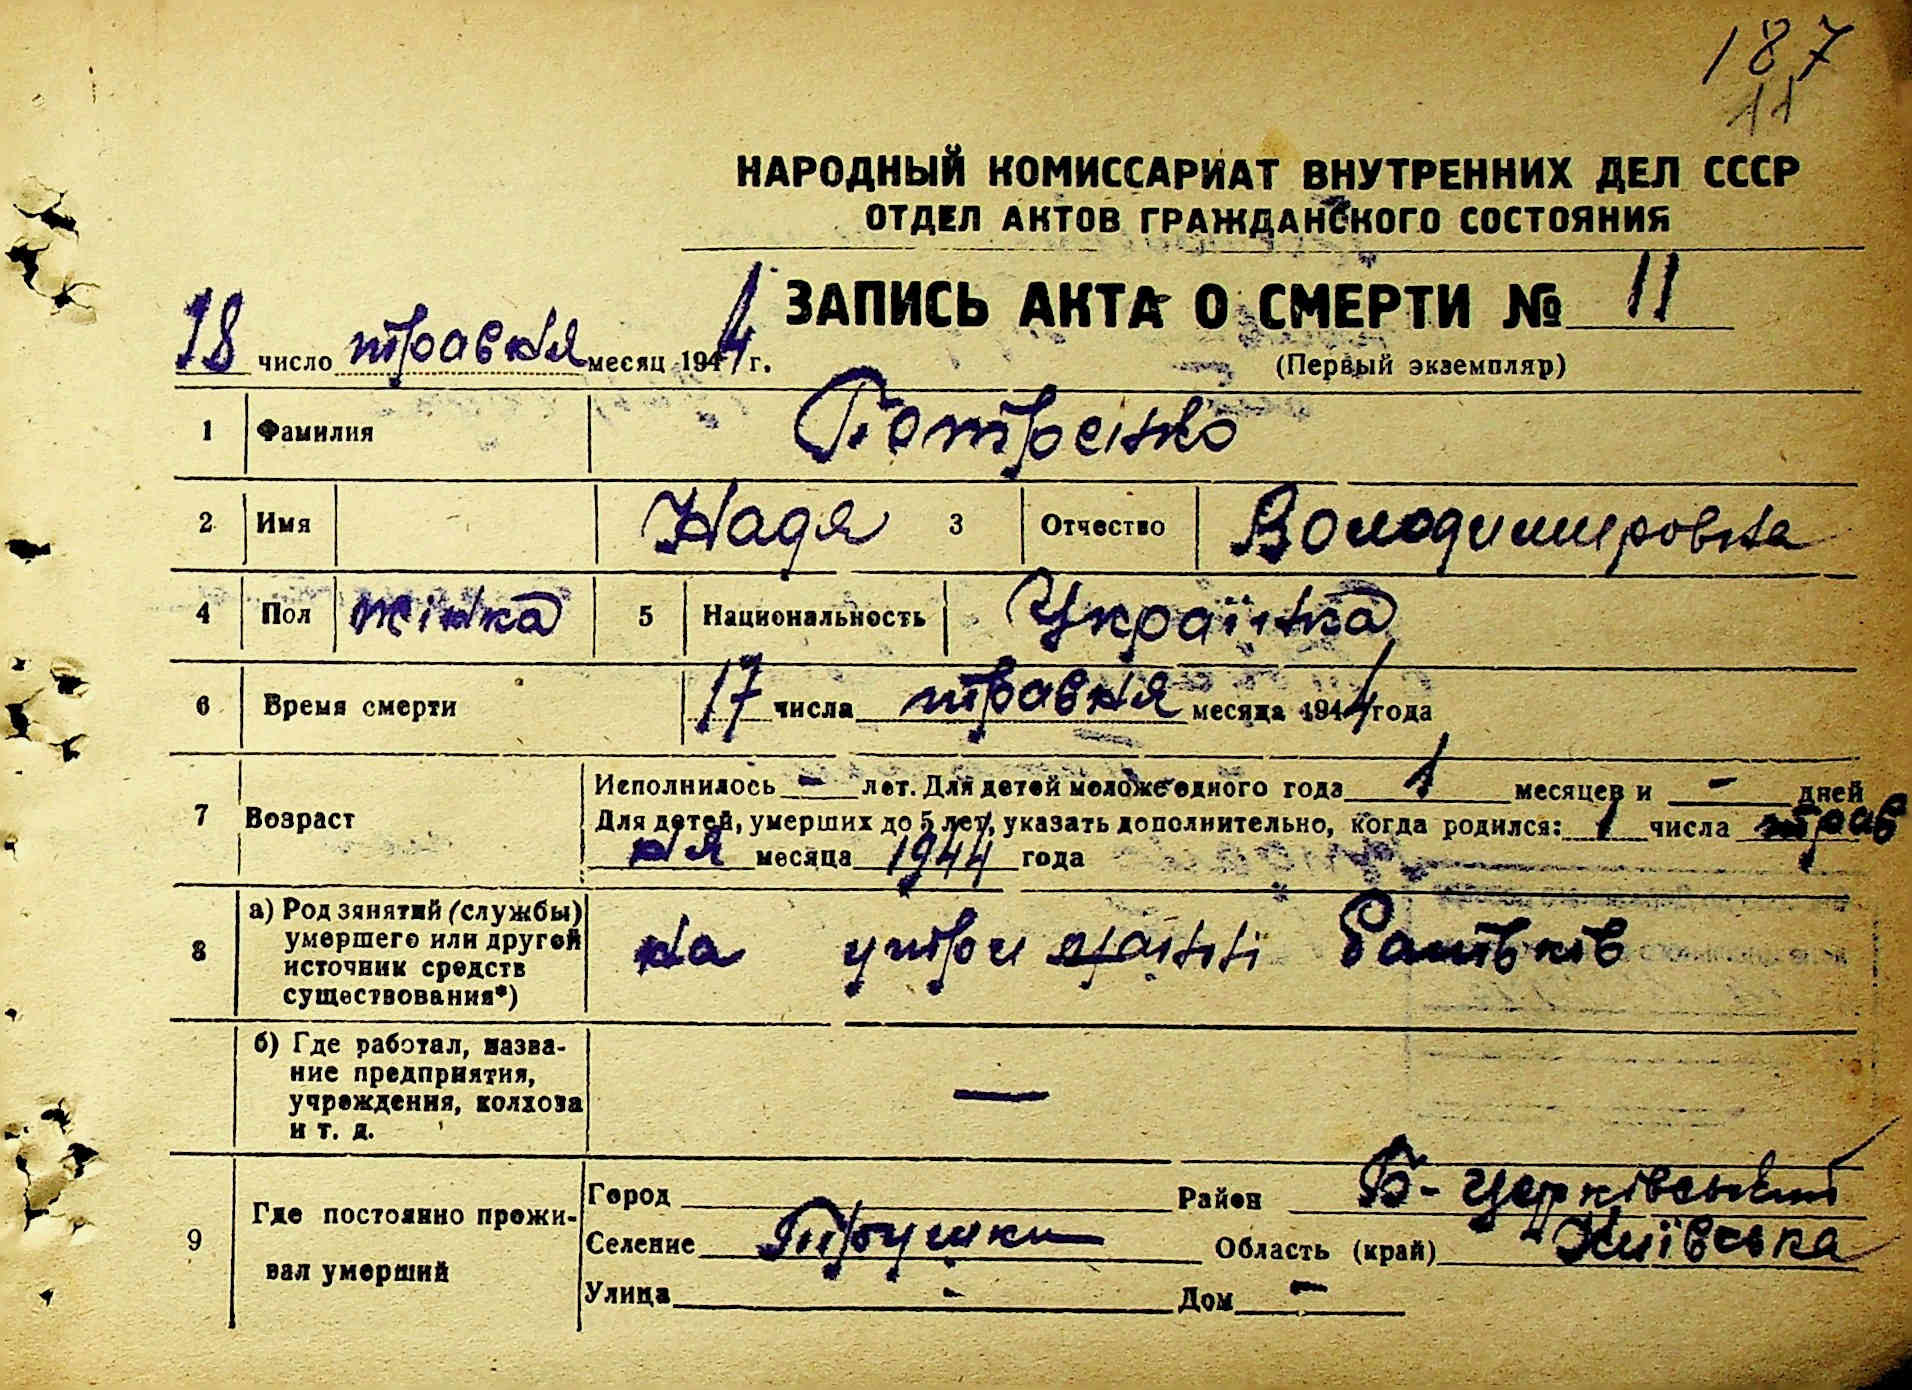 187
11
НАРОДНЫЙ КОМИССАРИАТ ВНУТРЕННИХ ДЕЛ СССР
ОТДЕЛ АКТОВ ГРАЖДАНСКОГО СОСТОЯНИЯ
ЗАПИСЬ АКТА О СМЕРТИ № 11
18 число травня месяц 1944 г.
(Первый экземпляр)
1 Фамилия Петренко
2 Имя Надя 3 Отчество Володимировна
4 Пол жінка 5 Национальность Українка
6 Время смерти 17 числа травня месяца 1944 года
7 Возраст Исполнилось - лет. Для детей моложе одного года 1 месяцев и - дней
Для детей, умерших до 5 лет, указать дополнительно, когда родился: 1 числа трав
ня месяца 1944 года
8 а) Род занятий (службы) умершего или другой источник средств существования*) на утриманні батьків
б) Где работал, название предприятия, учреждения, колхоза и т. д. —
9 Где постоянно проживал умерший
Город Район Б-Церківський
Селение Трушки Область (край) Київська
Улица - Дом -